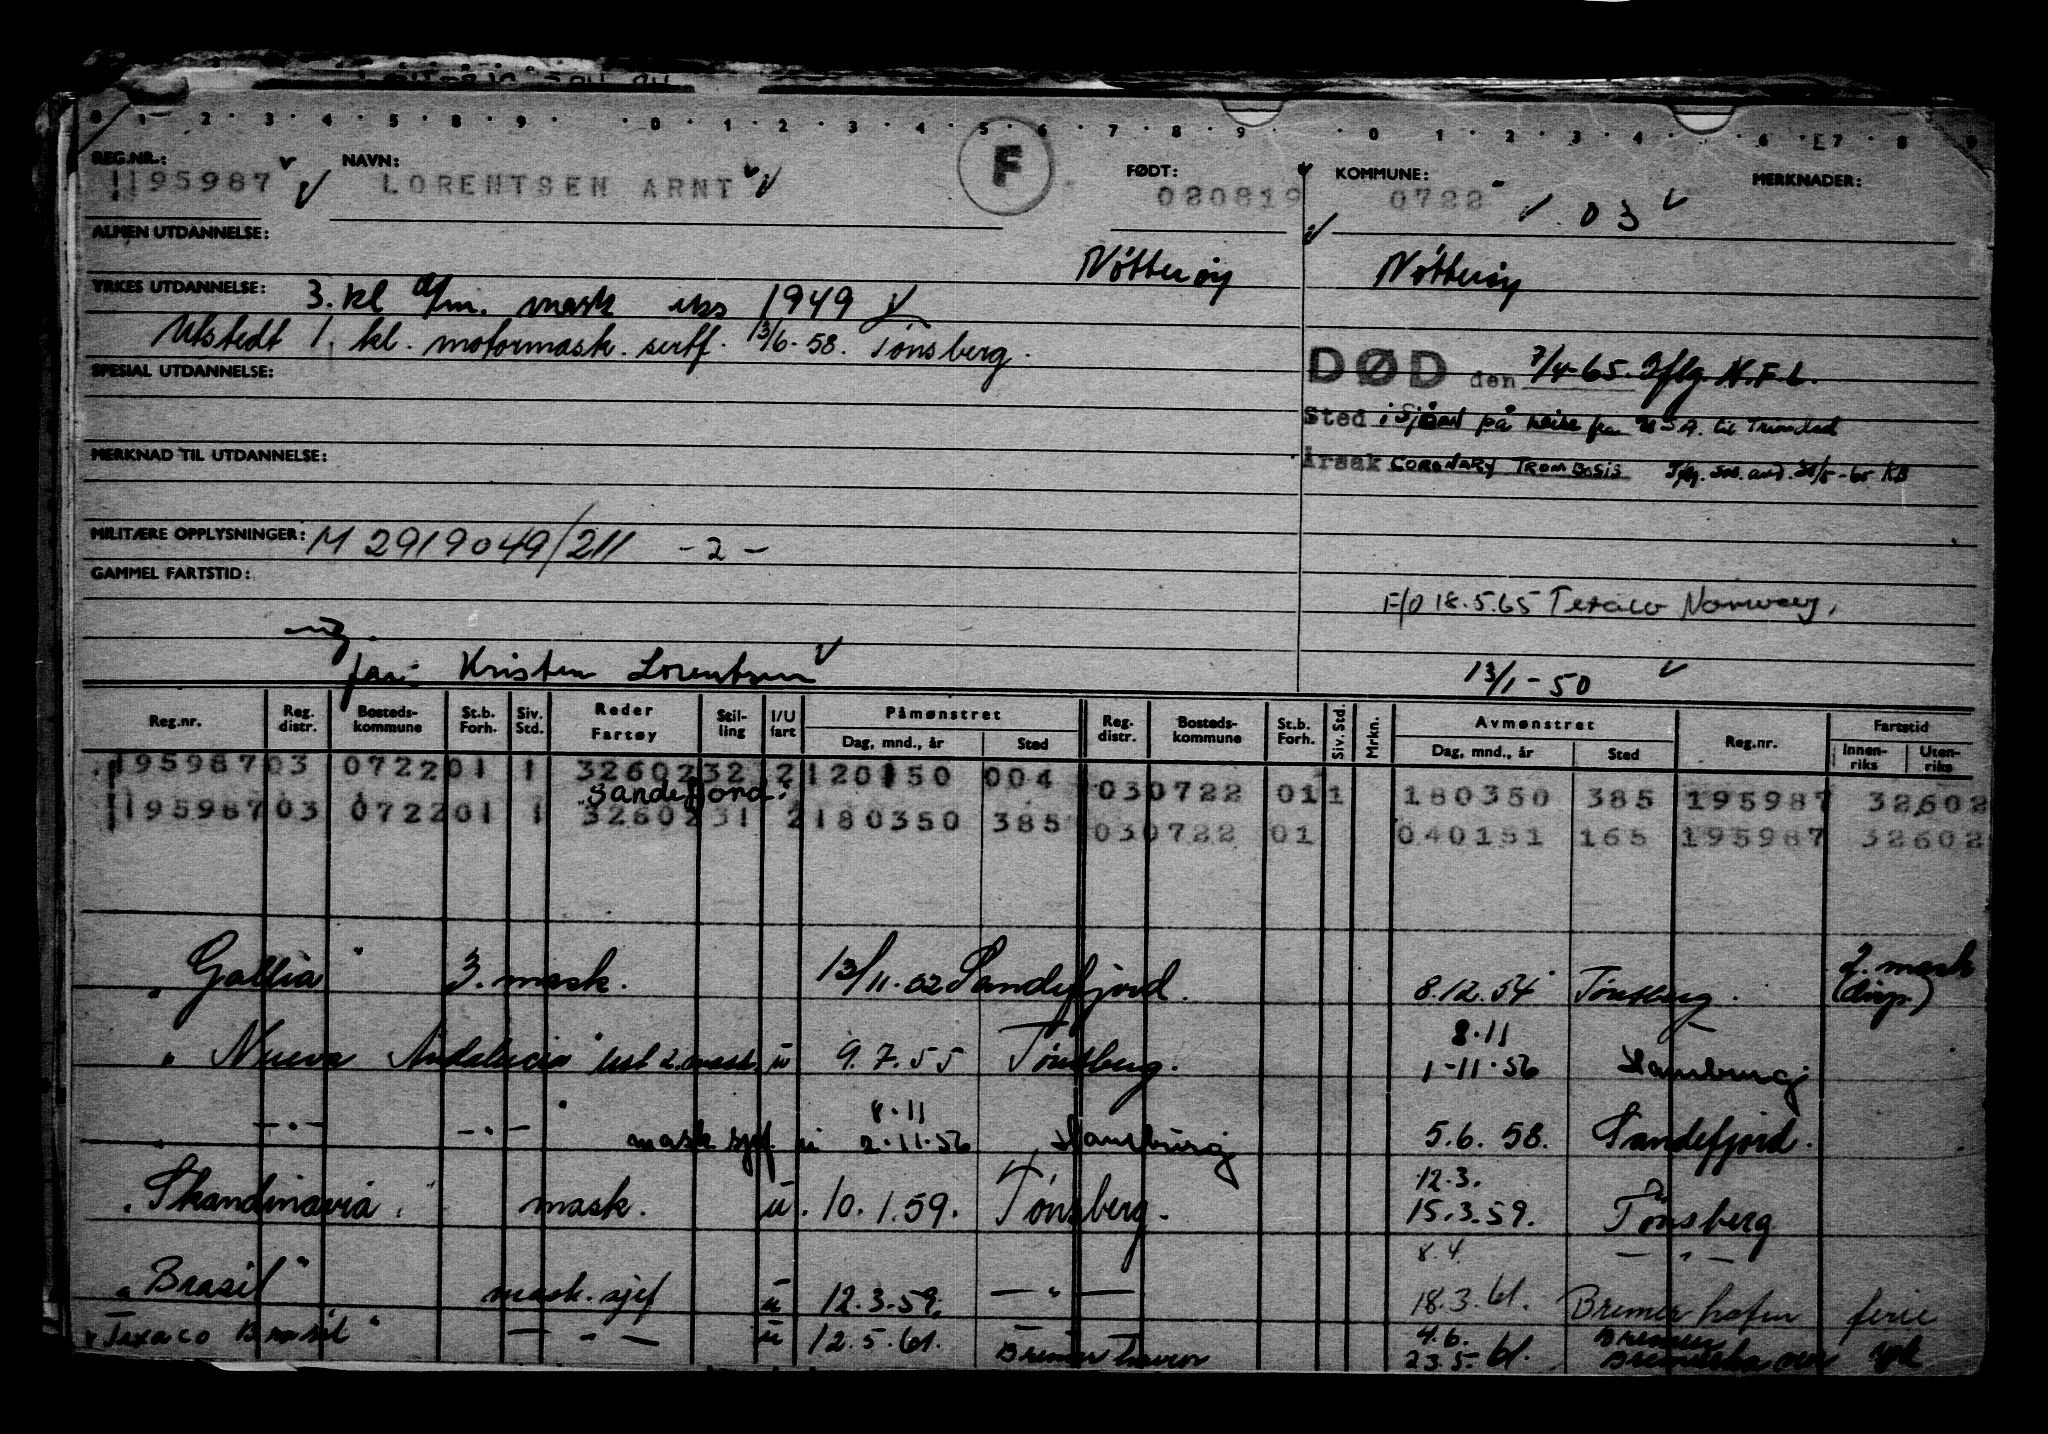 0 1 2 3 4 5 8 9 0 1 2 3 4 5 6 7 8 9 0 1 2 3 4 6 7 8 9
REG.NR.: NAVN: F FØDT: KOMMUNE: MERKNADER:
195987 LORENTSEN ARNT 080819 0722 03
ALMEN UTDANNELSE: Nötteröy Nötteröy
YRKES UTDANNELSE: 3. kl d/m. mask eks 1949
Utstedt 1. kl. motormask. sertf. 13/6-58. Tönsberg.
SPESIAL UTDANNELSE:
DØD den 7/4-65. Iflg. N.F.L.
Sted i Sjøen på reise fra USA. til Trinidad
MERKNAD TIL UTDANNELSE:
Årsak CORONARY TROMBOSIS
MILITÆRE OPPLYSNINGER: M 2919049/211 - 2 -
GAMMEL FARTSTID:
F/O 18.5.65 Texaco Norway.
far: Kristen Lorentsen 13/1-50
Reg.nr. Reg. distr. Bosteds-kommune St.b. Forh. Siv. Std. Reder Fartøy Stil-ling I/U fart Påmønstret Reg-distr. Bosteds-kommune St.b. Forh. Siv. Std. Mrkn. Avmønstret Reg.nr. Fartstid
Dag, mnd., år Sted Dag, mnd., år Sted Innen-riks Uten-riks
195987 03 0722 01 1 32602 32 2 120150 004 03 0722 01 1 180350 385 195987 32602
"Sandefjord"
195987 03 0722 01 1 32602 31 2 180350 385 03 0722 01 040151 165 195987 32602
"Gallia" 3. mask. 13/11.52 Sandefjord. 8.12.54 Tönsberg. 2. mask (disp.)
8.11
"Nueva Andalucia" 2. mask. u 9.7.55 Tönsberg. 1-11.56 Hamburg
8.11
— " — — " — mask sjef u 2.11.56 Hamburg 5.6.58. Sandefjord.
12.3.
"Skandinavia" mask. u. 10.1.59. Tönsberg. 15.3.59. Tönsberg
8.4. — " —
"Brasil" mask. sjef u 12.3.59. — " — 18.3.61. Bremerhafen ferie
4.6. Bremen
"Texaco Brasil" — " — u 12.5.61. Bremerhaven 23.5.61. Bremerhaven